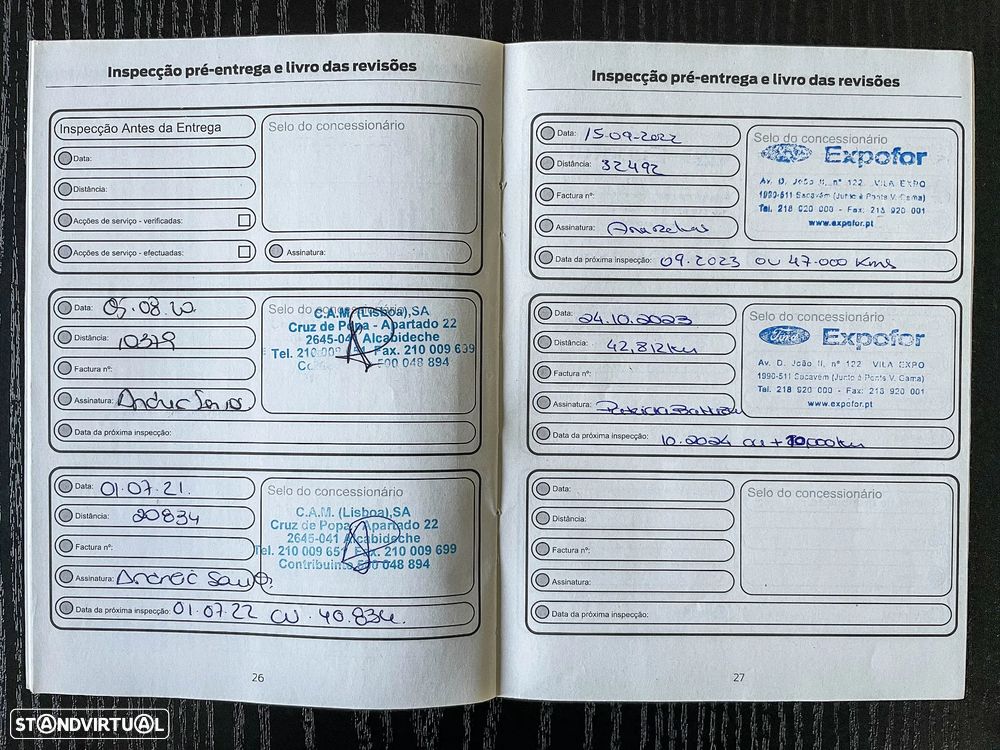 Inspecção pré-entrega e livro das revisões
Inspecção Antes da Entrega
Selo do concessionário
Data:
Distância:
Acções de serviço - verificadas:
Acções de serviço - efectuadas:
Assinatura:
Data: 05.08.20
Selo do concessionário
C.A.M. (Lisboa),SA
Cruz de Popa - Apartado 22
2645-041 Alcabideche
Tel. 210 009 651 Fax. 210 009 699
500 048 894
Distância: 10379
Factura nº:
Assinatura:
Data da próxima inspecção:
Data: 01.07.21.
Selo do concessionário
C.A.M. (Lisboa),SA
Cruz de Popa - Apartado 22
2645-041 Alcabideche
Tel. 210 009 651 Fax. 210 009 699
Contribuinte 500 048 894
Distância: 20834
Factura nº:
Assinatura:
Data da próxima inspecção: 01.07.22 ou . 40.834.
26
Inspecção pré-entrega e livro das revisões
Data: 15-09-2022
Selo do concessionário
Ford Expofor
Av. D. João II, nº 122 VILA EXPO
1990-511 Sacavém (Junto à Ponte V. Gama)
Tel. 218 920 000 - Fax: 218 920 001
www.expofor.pt
Distância: 32492
Factura nº:
Assinatura:
Data da próxima inspecção: 09.2023 ou 47.000 Kms
Data: 24.10.2023
Selo do concessionário
Ford Expofor
Av. D. João II, nº 122 VILA EXPO
1990-511 Sacavém (Junto à Ponte V. Gama)
Tel. 218 920 000 - Fax: 218 920 001
www.expofor.pt
Distância: 42,812km
Factura nº:
Assinatura:
Data da próxima inspecção: 10.2024 ou +
Data:
Selo do concessionário
Distância:
Factura nº:
Assinatura:
Data da próxima inspecção:
27
STANDVIRTUAL